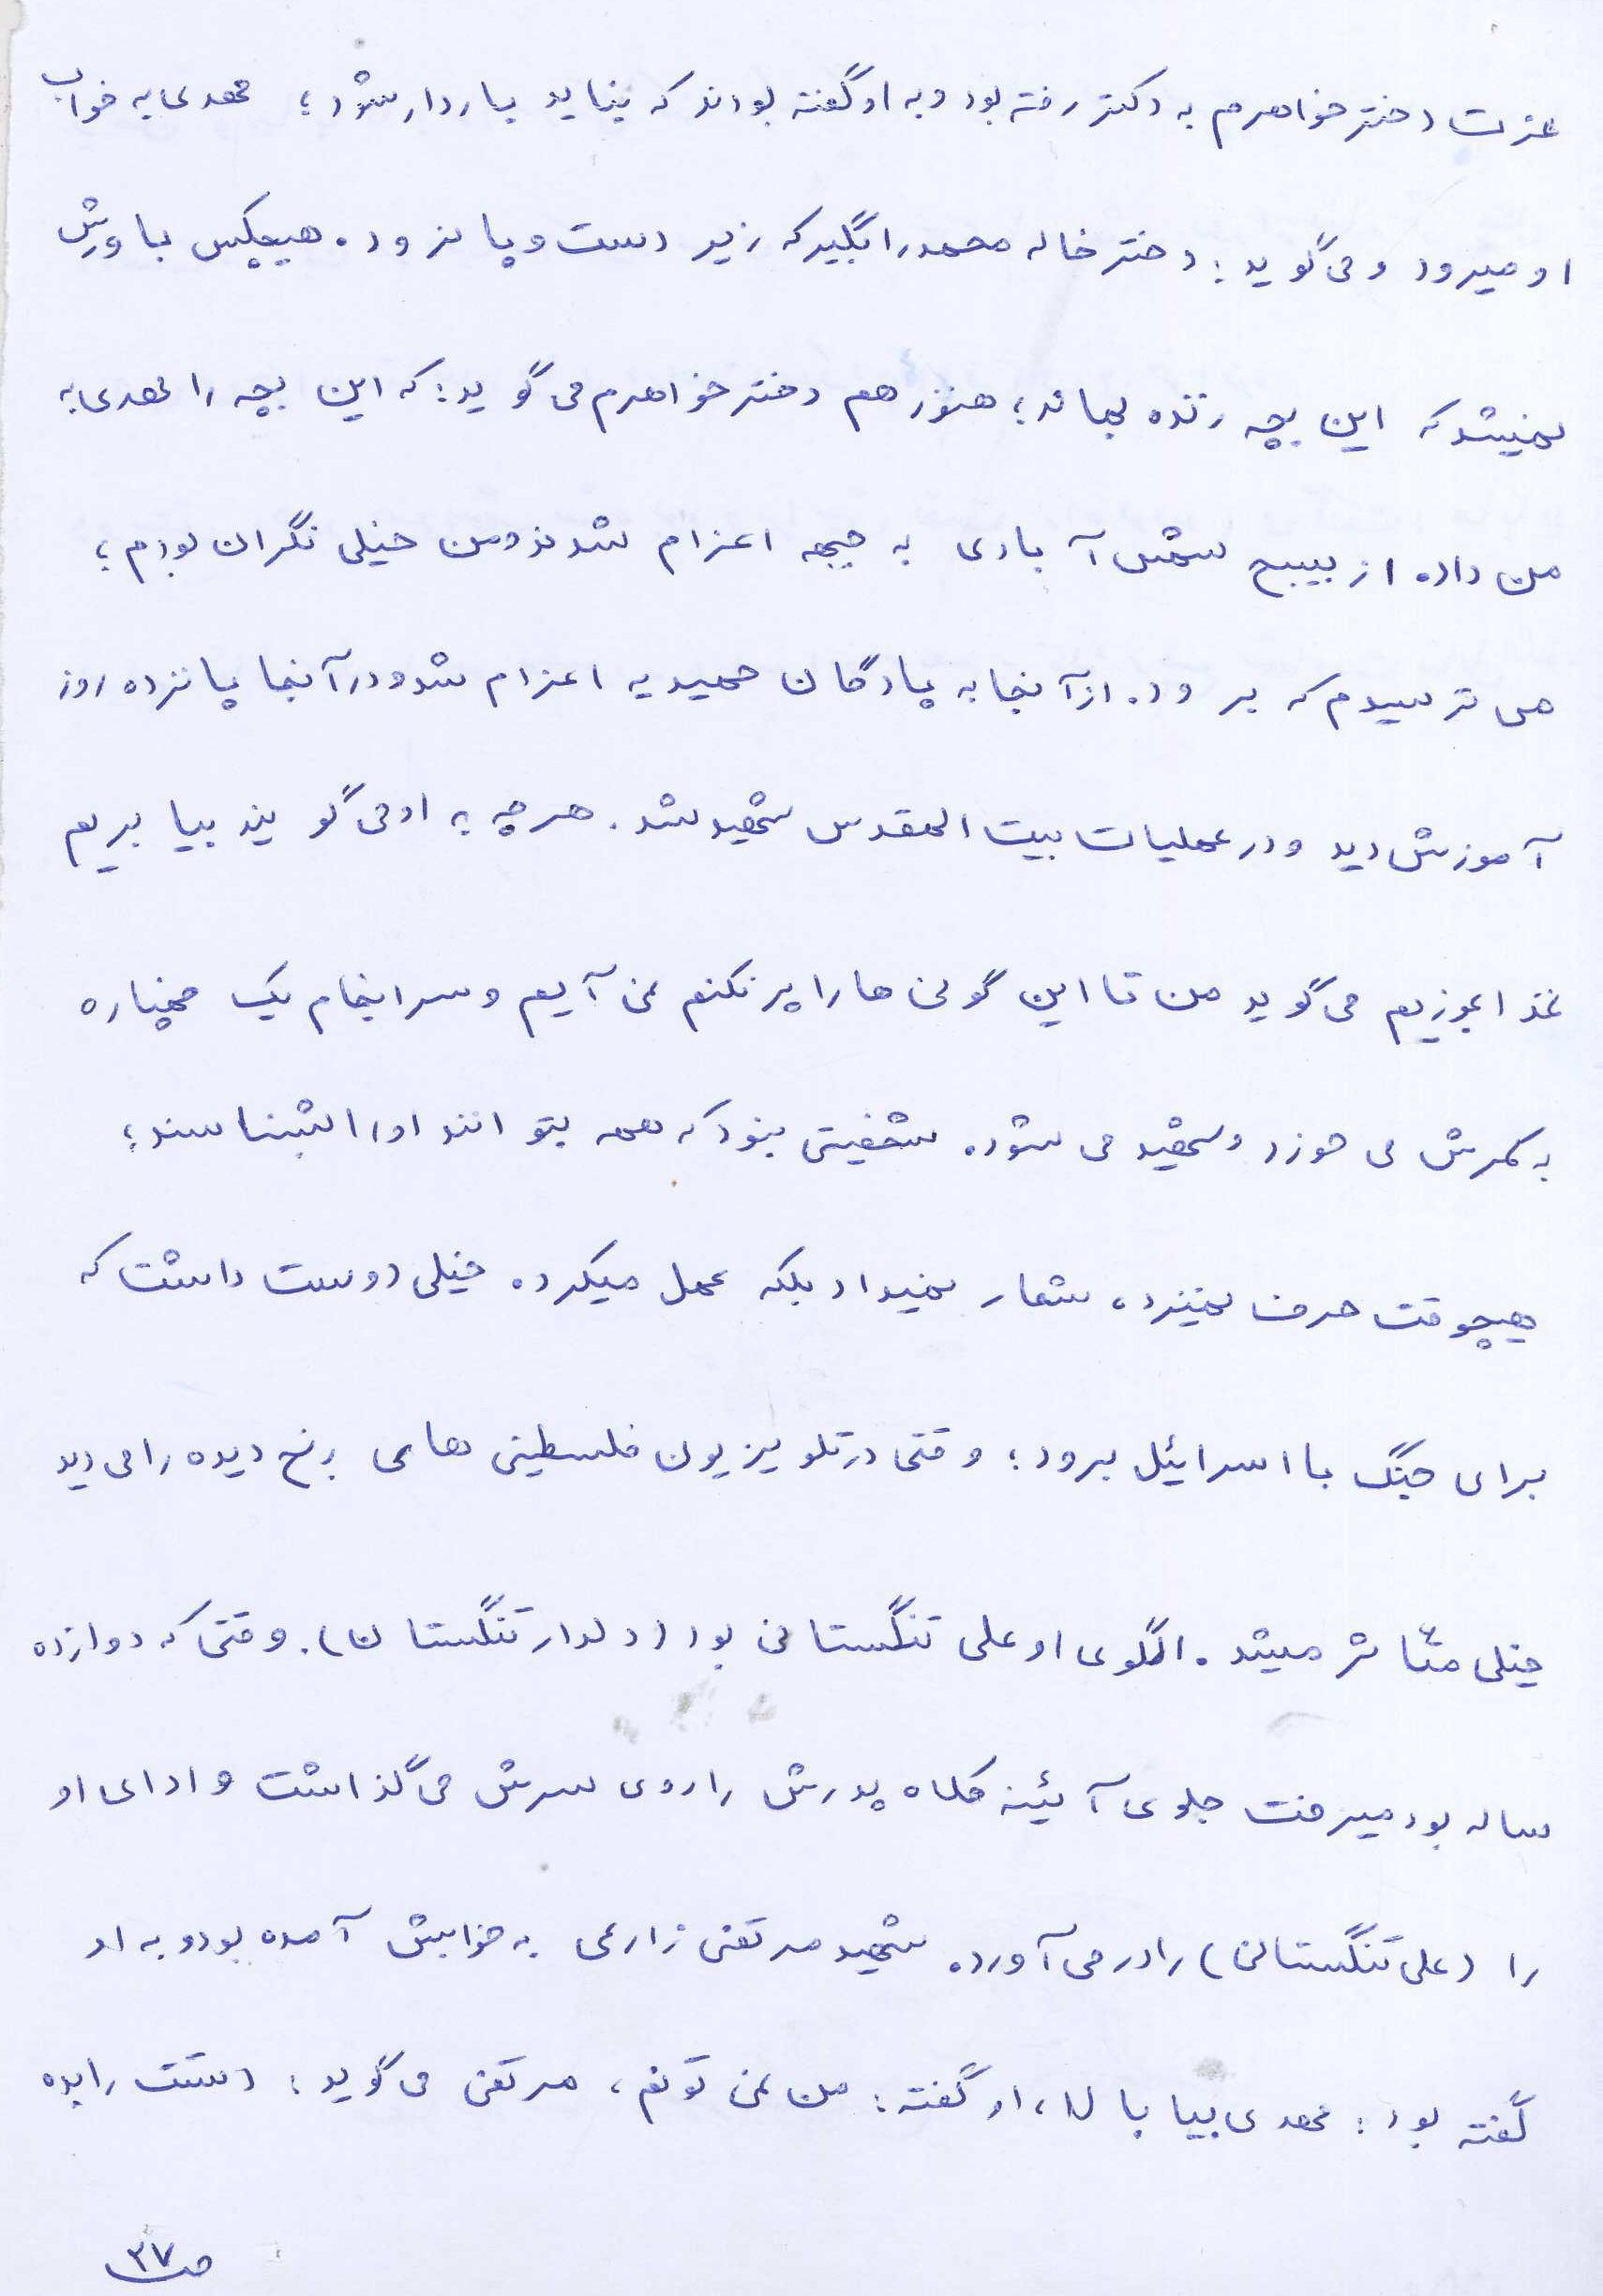 عزت دختر خواهرم به دکتر رفته بود و به او گفته بودند که نباید باردار شود؛ مهدی به خواب
او میرود و می‌گوید: دختر خاله محمد را بگیر که زیر دست و پا نرود. هیچکس باورش
نمیشد که این بچه زنده بماند؛ هنوز هم دختر خواهرم می‌گوید: که این بچه را مهدی به
من داده. از بسیج شمس آبادی به جبهه اعزام شدند و من خیلی نگران بودم؛
می ترسیدم که برود. از آنجا به پادگان حمیدیه اعزام شد و در آنجا پانزده روز
آموزش دید و در عملیات بیت المقدس شهید شد. هر چه به او می‌گویند بیا بریم
غذا بخوریم می‌گوید من تا این گونی ها را پر نکنم نمی آیم و سرانجام یک خمپاره
به کمرش می خورد و شهید می شود. شخصیتی نبود که همه بتوانند او را بشناسند؛
هیچوقت حرف نمیزد، شعار نمیداد بلکه عمل میکرد. خیلی دوست داشت که
برای جنگ با اسرائیل برود؛ وقتی در تلویزیون فلسطینی های رنج دیده را می دید
خیلی متأثر میشد. الگوی او علی تنگستانی بود (دلدار تنگستان). وقتی که دوازده
ساله بود میرفت جلوی آئینه کلاه پدرش را روی سرش می گذاشت و ادای او
را (علی تنگستانی) را در می آورد. شهید مرتضی زارعی به خوابش آمده بود و به او
گفته بود: مهدی بیا بالا، او گفته: من نمی تونم، مرتضی می گوید: دستت را بده
ص ۳۷